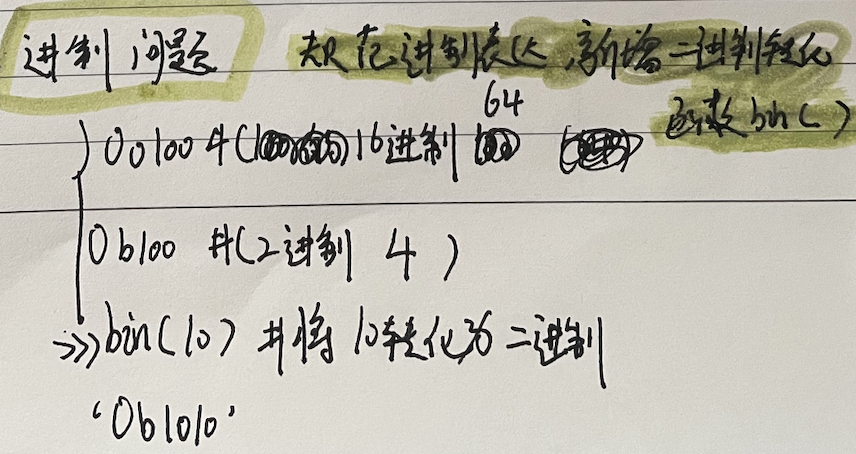 进制问题 规范进制表达 新增二进制转化
64
函数bin()
0o100 #( 16进制
0b100 #(2进制 4)
>>>bin(10) #将10转化为二进制
'0b1010'